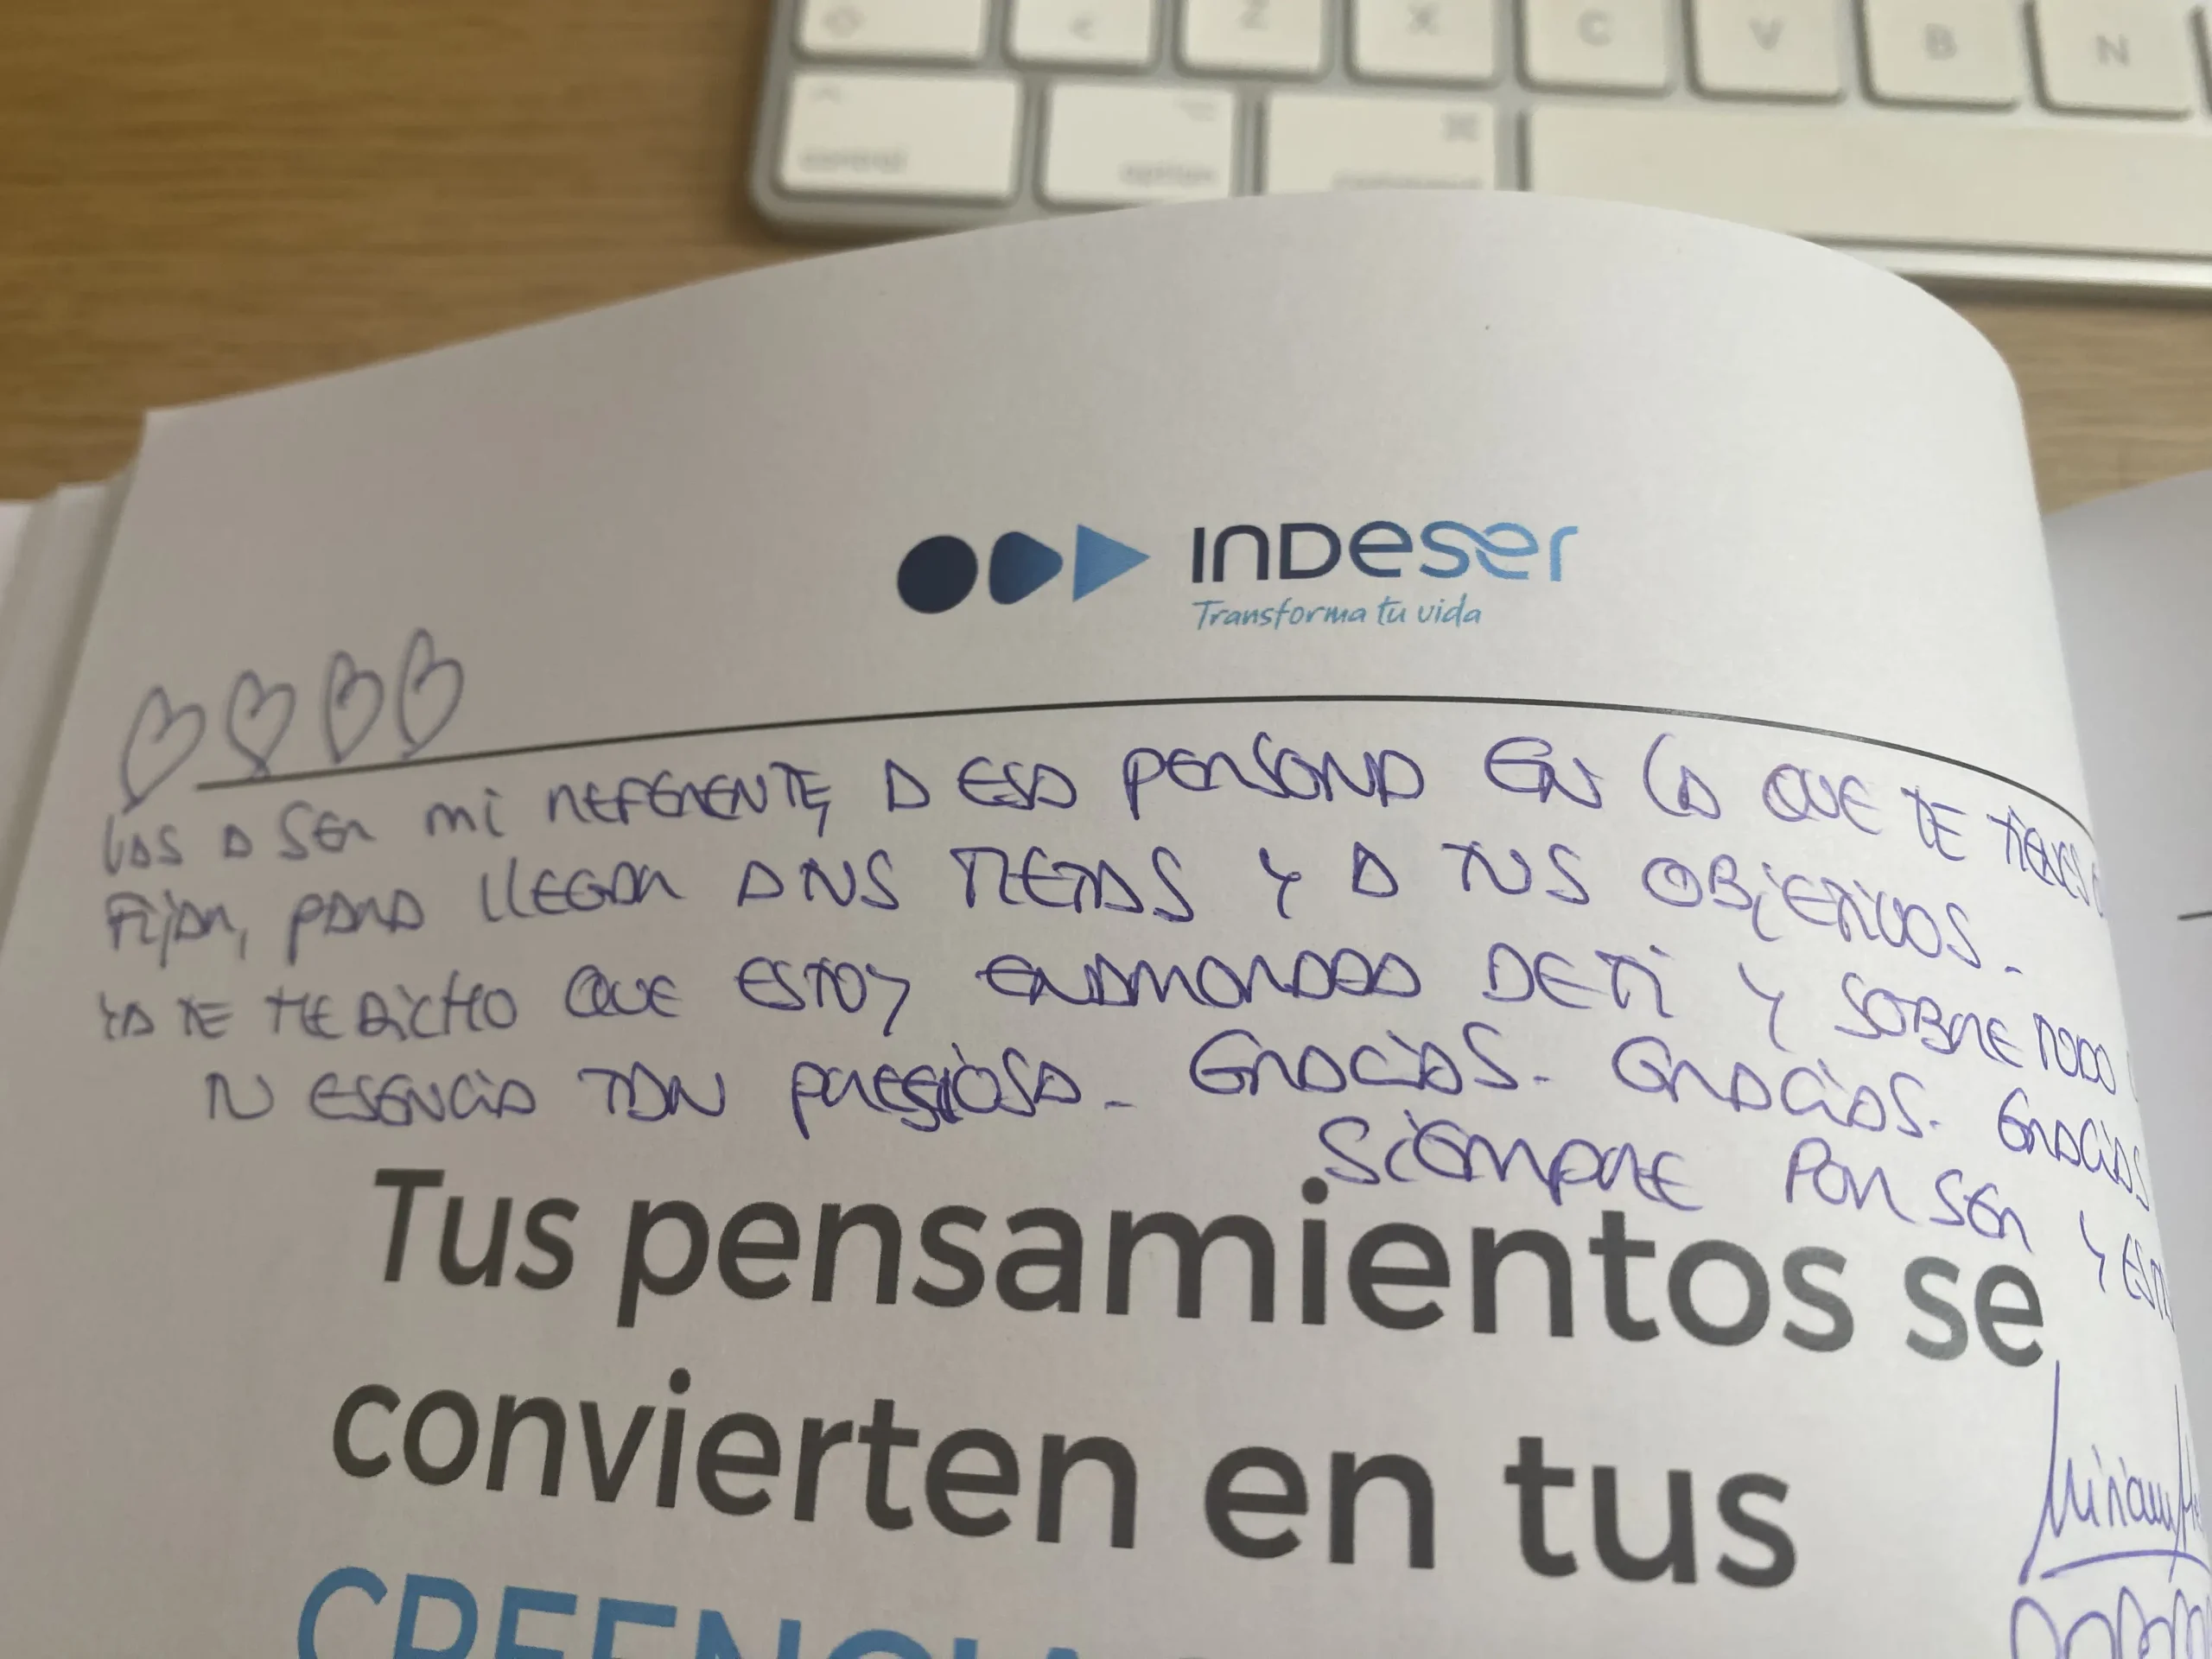 Z X C V B N
control option command
INDeser
Transforma tu vida
VAS A SER mi REFERENTE, A ESA PERSONA EN LA QUE TE TIENES
FIJAR, PARA LLEGAR A TUS METAS Y A TUS OBJETIVOS.
YA TE HE DICHO QUE ESTOY ENAMORADA DE TI Y SOBRE TODO
TU ESENCIA TAN PRECIOSA. GRACIAS. GRACIAS. GRACIAS
SIEMPRE POR SER Y
Tus pensamientos se
convierten en tus
Miriam